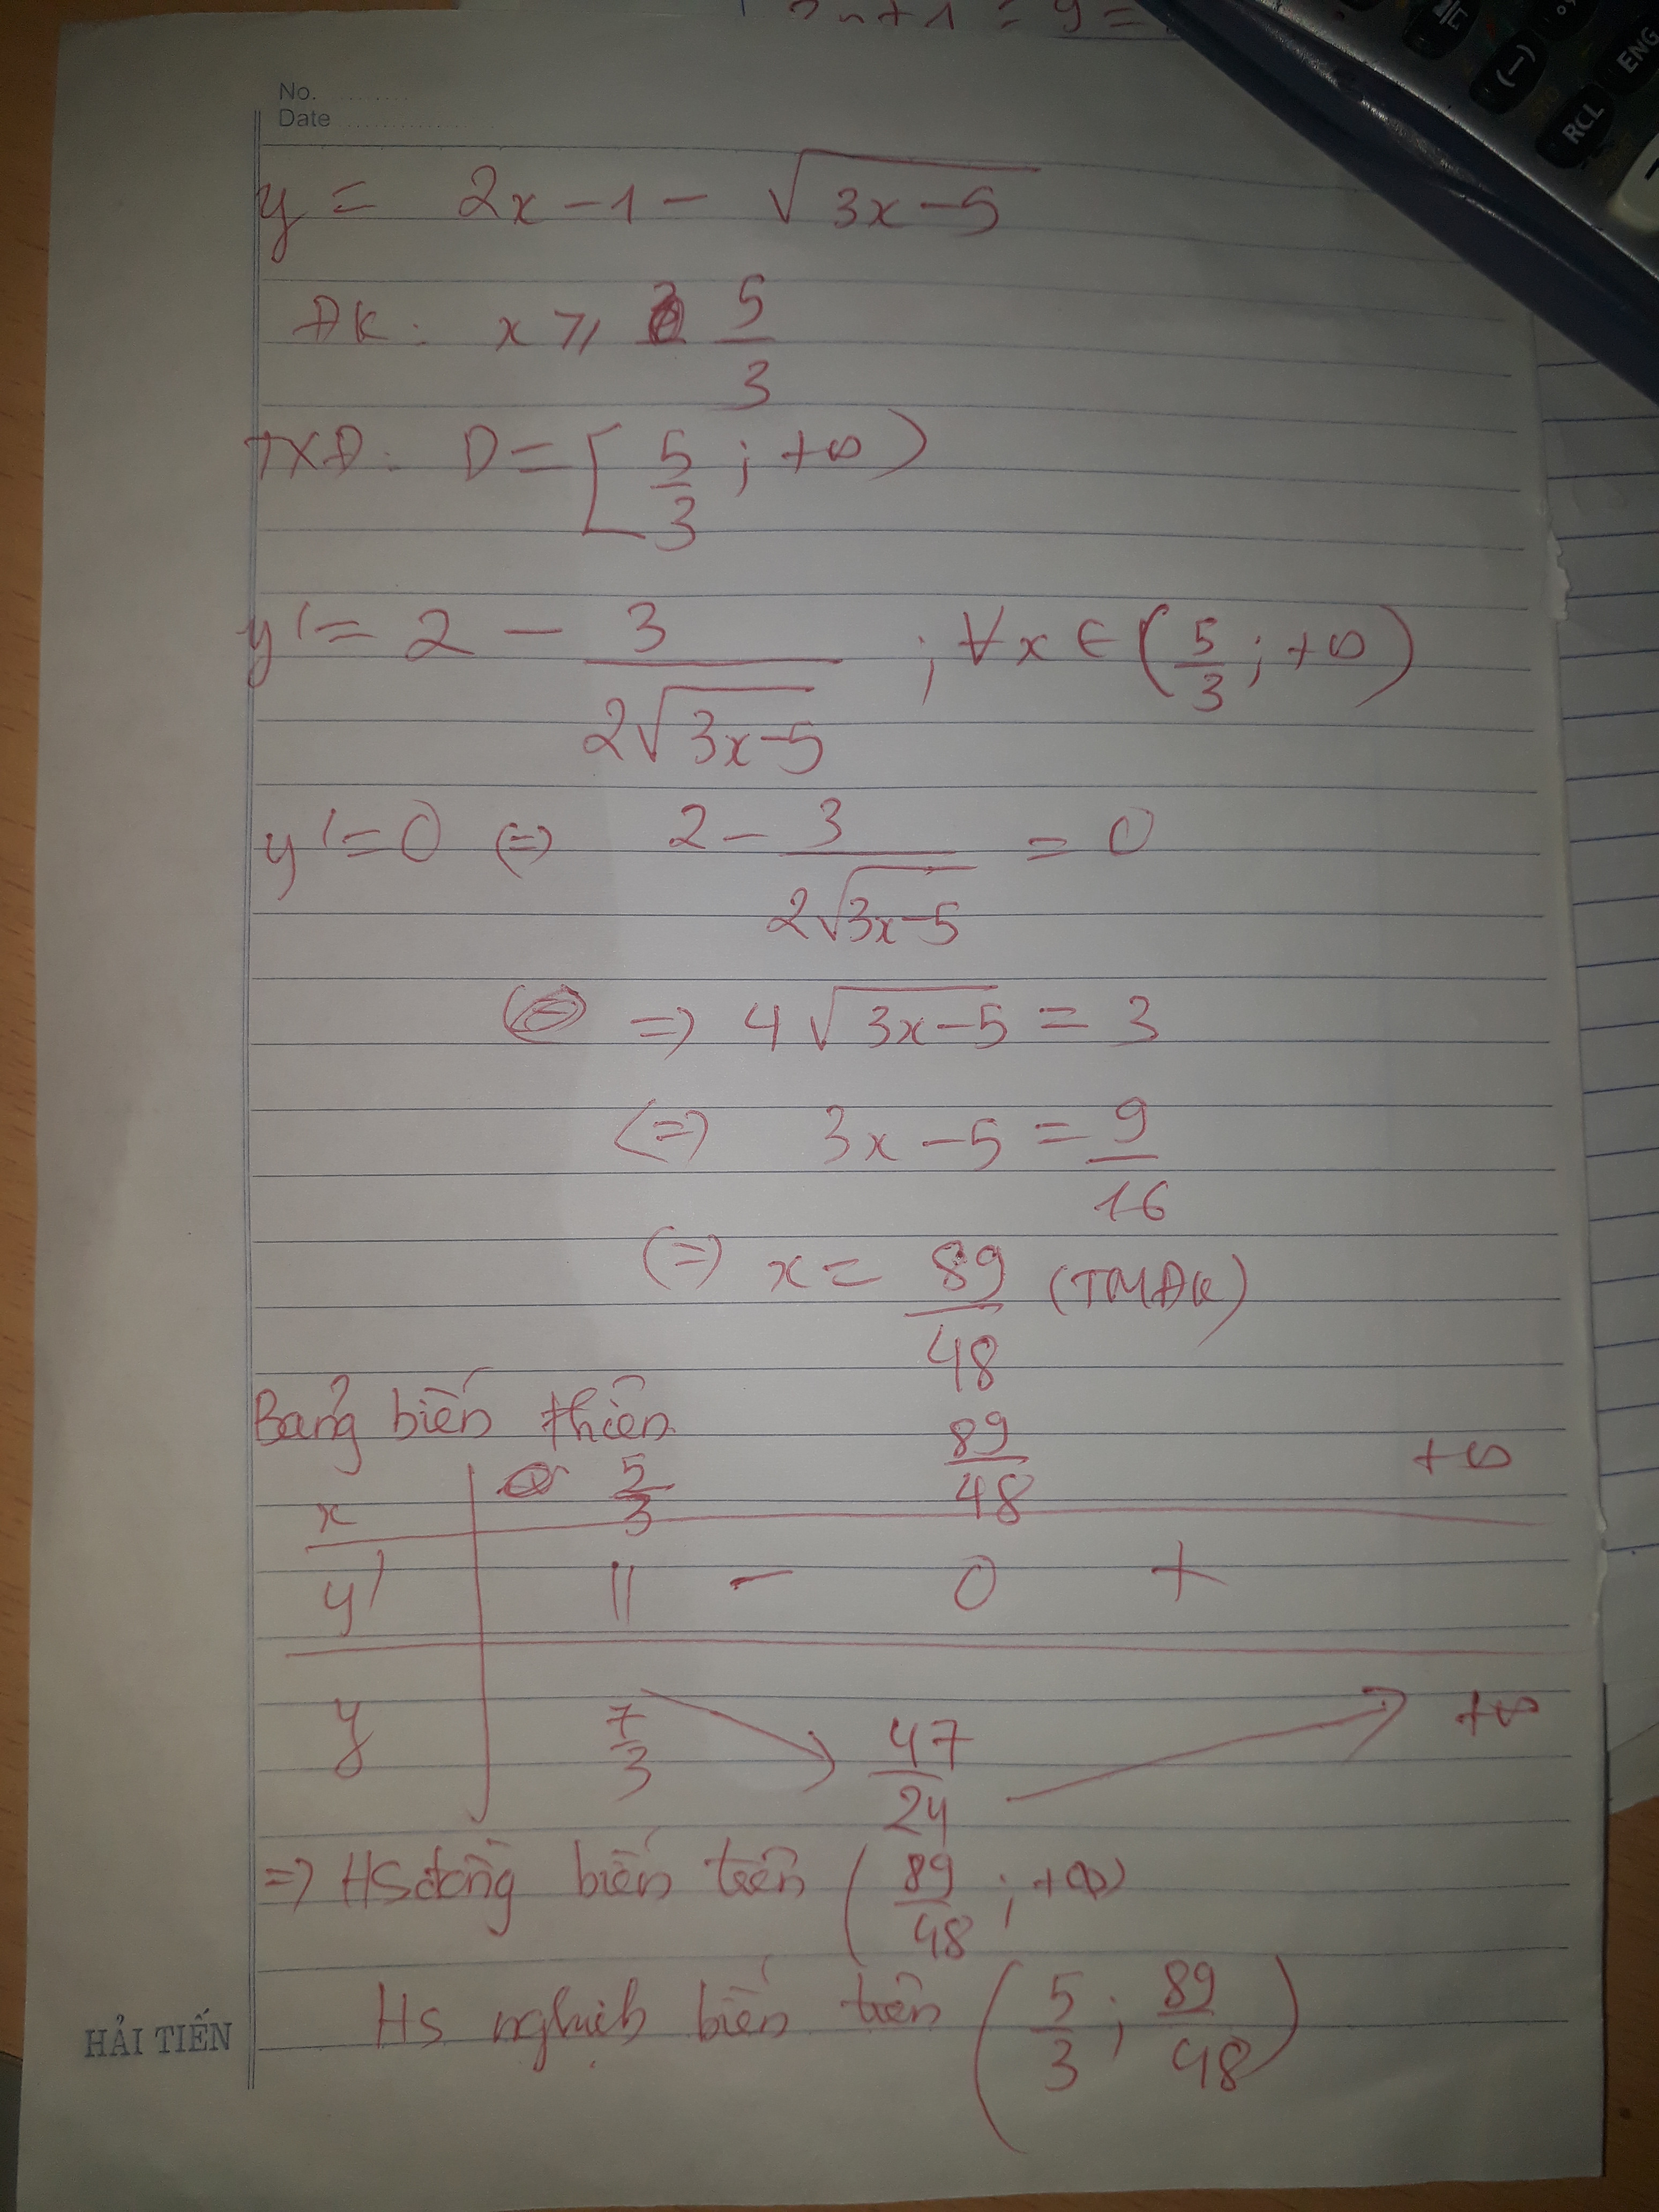 2x + 1 = 9 =
No.
Date
y = 2x - 1 - √(3x-5)
ĐK: x ≥ 5/3
TXĐ: D = [5/3; +∞)
y' = 2 - 3/(2√(3x-5)) ; ∀x ∈ (5/3; +∞)
y' = 0 (=) 2 - 3/(2√(3x-5)) = 0
=> 4√(3x-5) = 3
(=) 3x - 5 = 9/16
(=) x = 89/48 (TMĐK)
Bảng biến thiên
x | 5/3 89/48 +∞
y' | || - 0 +
y 7/3 ↘ 47/24 ↗ +∞
=> HS đồng biến trên (89/48; +∞)
Hs nghịch biến trên (5/3; 89/48)
HẢI TIẾN
(-)
ENG
RCL